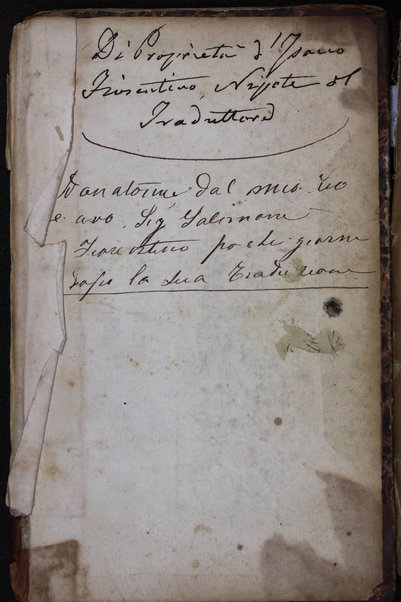 Di Proprietà d'Isacco
Fiorentino, Nipote del
Traduttore
Donatomi dal mio
e avo Sigʳ Salomone
Fiorentino pochi giorni
dopo la sua Traduzione